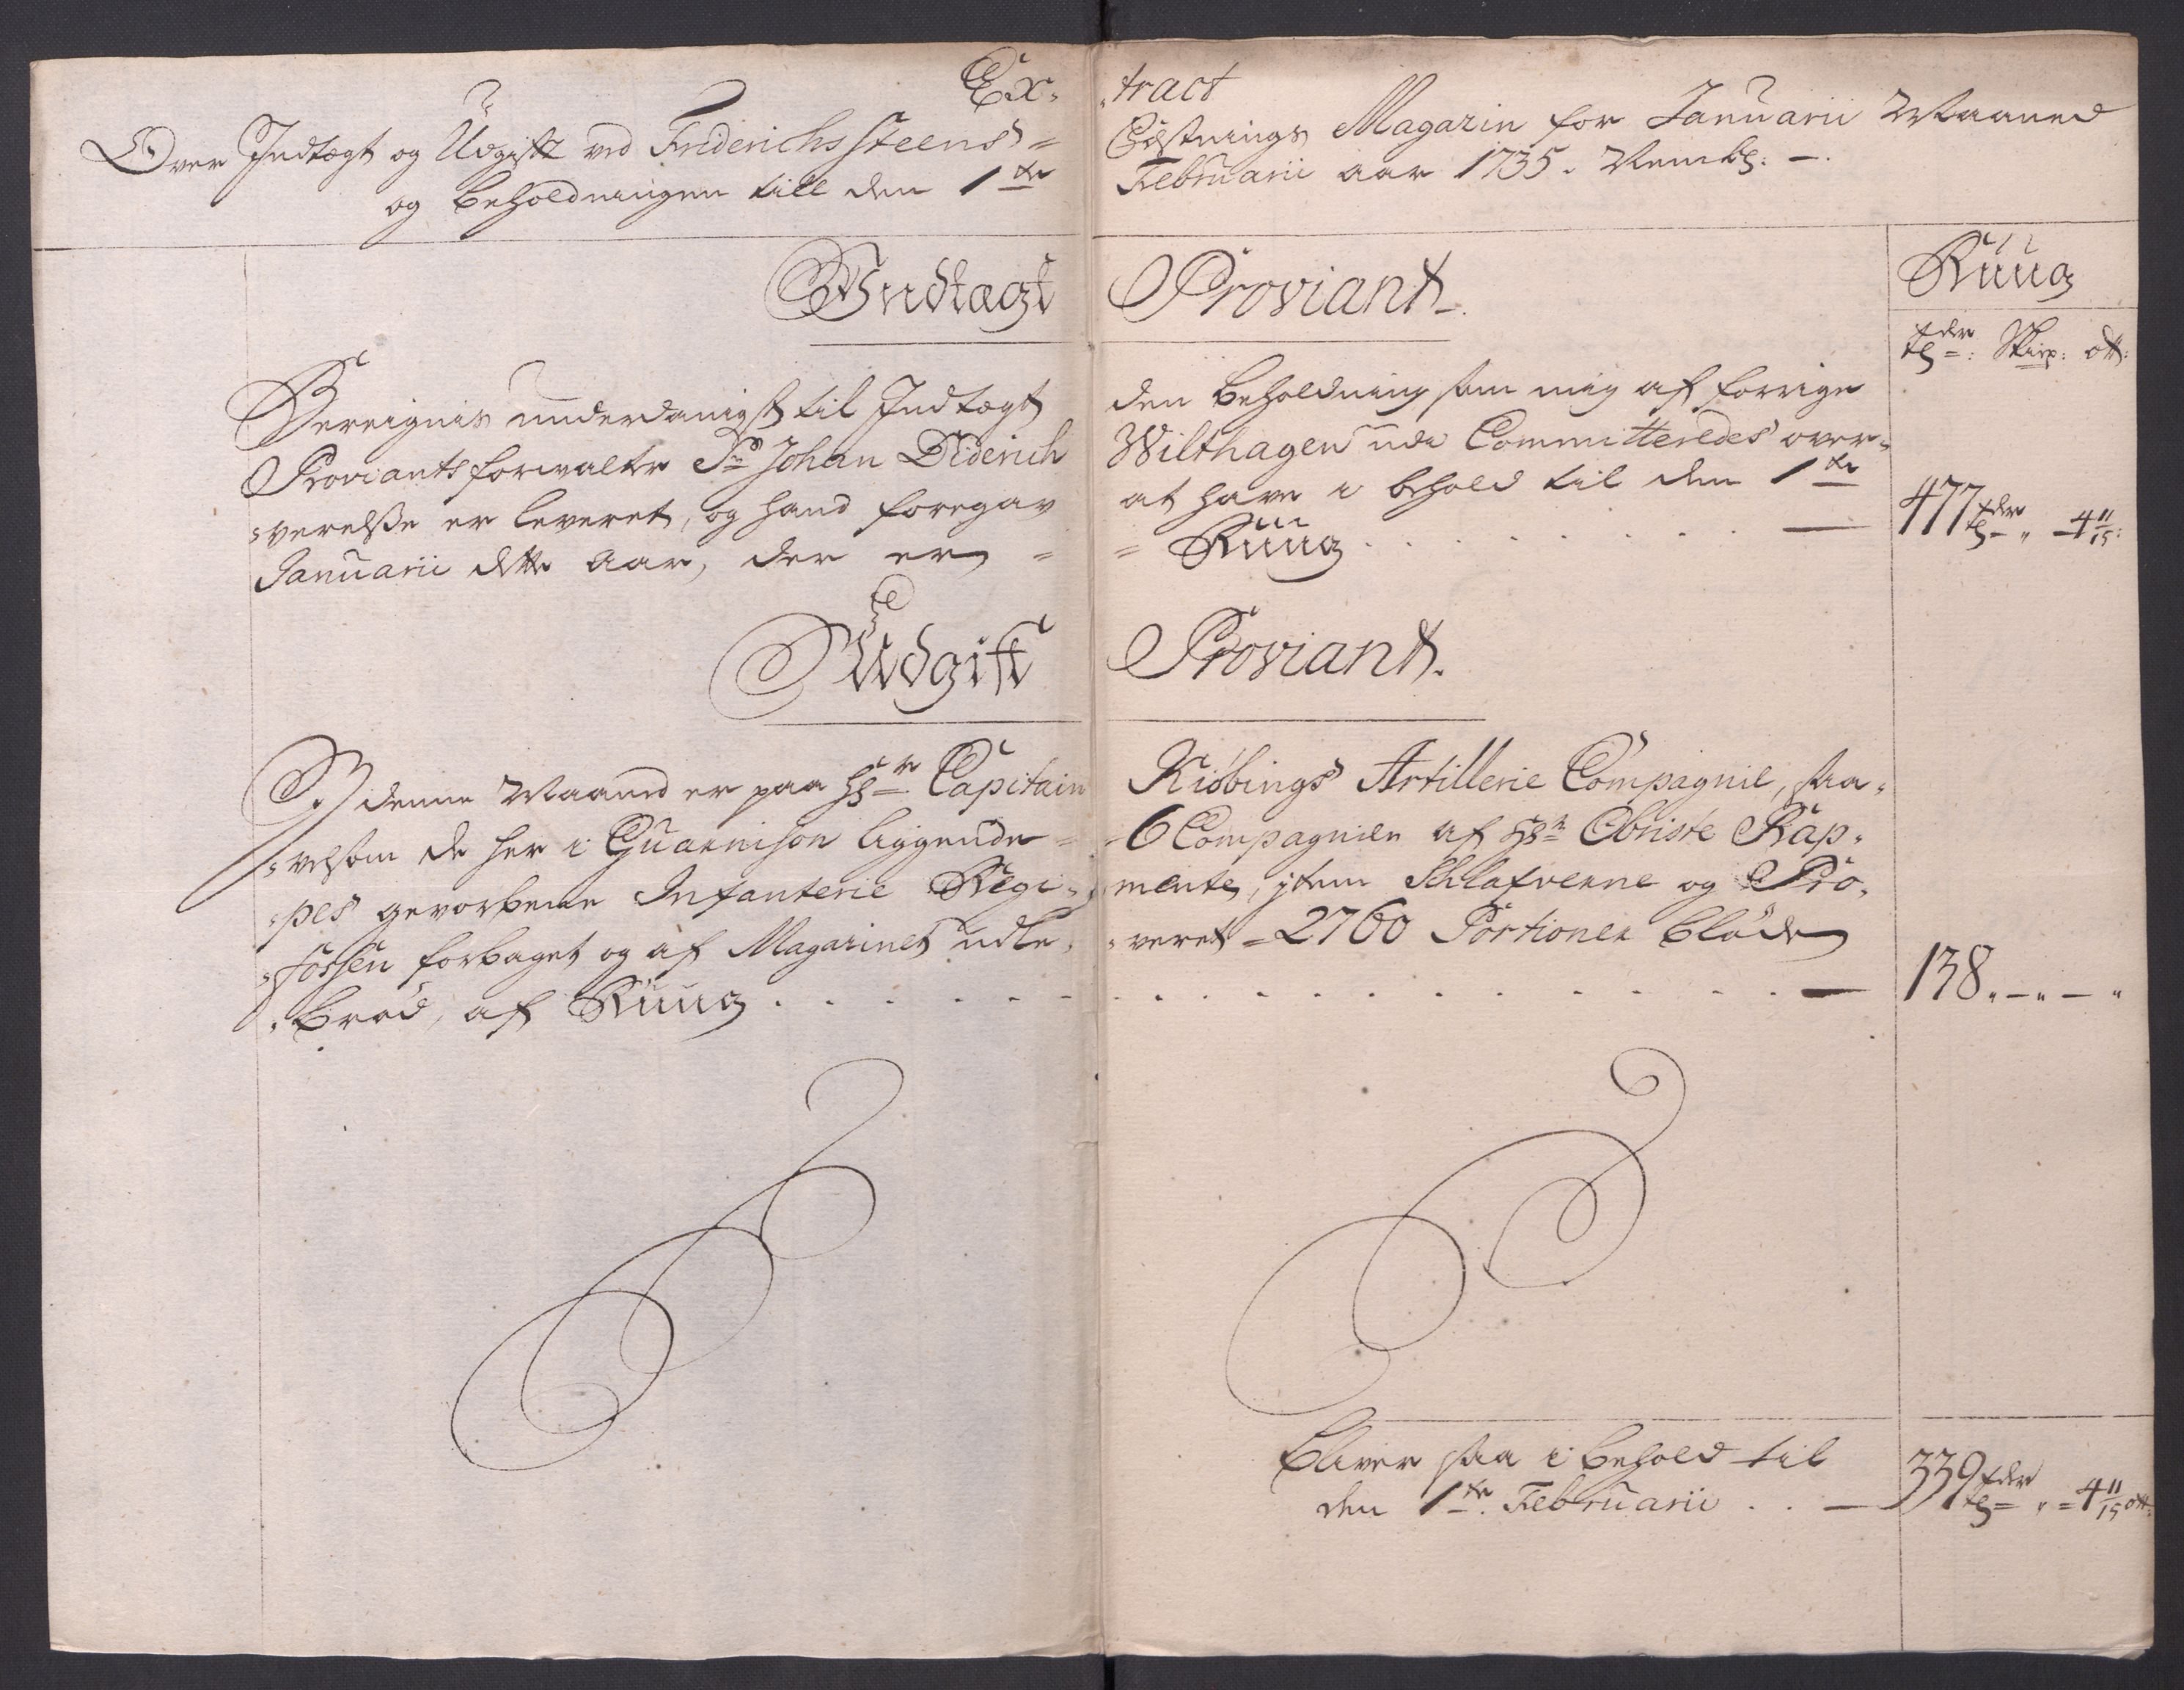 Ex- -tract
Over Indtægt og Udgift ved Friderichs steens= Fæstnings Magazin for Januarii Maaned
og beholdningen till den 1te Februarii aar 1735. Nembl: -.
Indtægt Proviant. Ruug
tdr: Skiep: ott:
Bereignis underdanigst til Indtægt den beholdning som mig af forrige
Proviantsforvalter Sr Johan Diderich Wilthagen ude Committeredes over-
-verelse er leveret, og hand foregav at have i behold til den 1te
Januarii dette Aar, der er = = Ruug . . . . . . . — 477 tdr " - 4 11/15:
Udgift Proviant.
I denne Maaned er paa Hr Capitain Kiöbings Artillerie Compagnie, saa-
-velsom de her i Guarnison liggende= -6 Compagnier af Hr Obriste Rap-
-pes gevorbene Infanterie Regi- mente, jtem Schlafverne og Pro-
-fossen forbaget og af Magazinet udle- -veret = 2760 Portioner bløde
-brød, af Ruug . . . . . . . . . . . . . . . — 138 " - " - "
Bliver saa i behold til
den 1te Februarii . . — 339 tdr " = 4 11/15 ott: